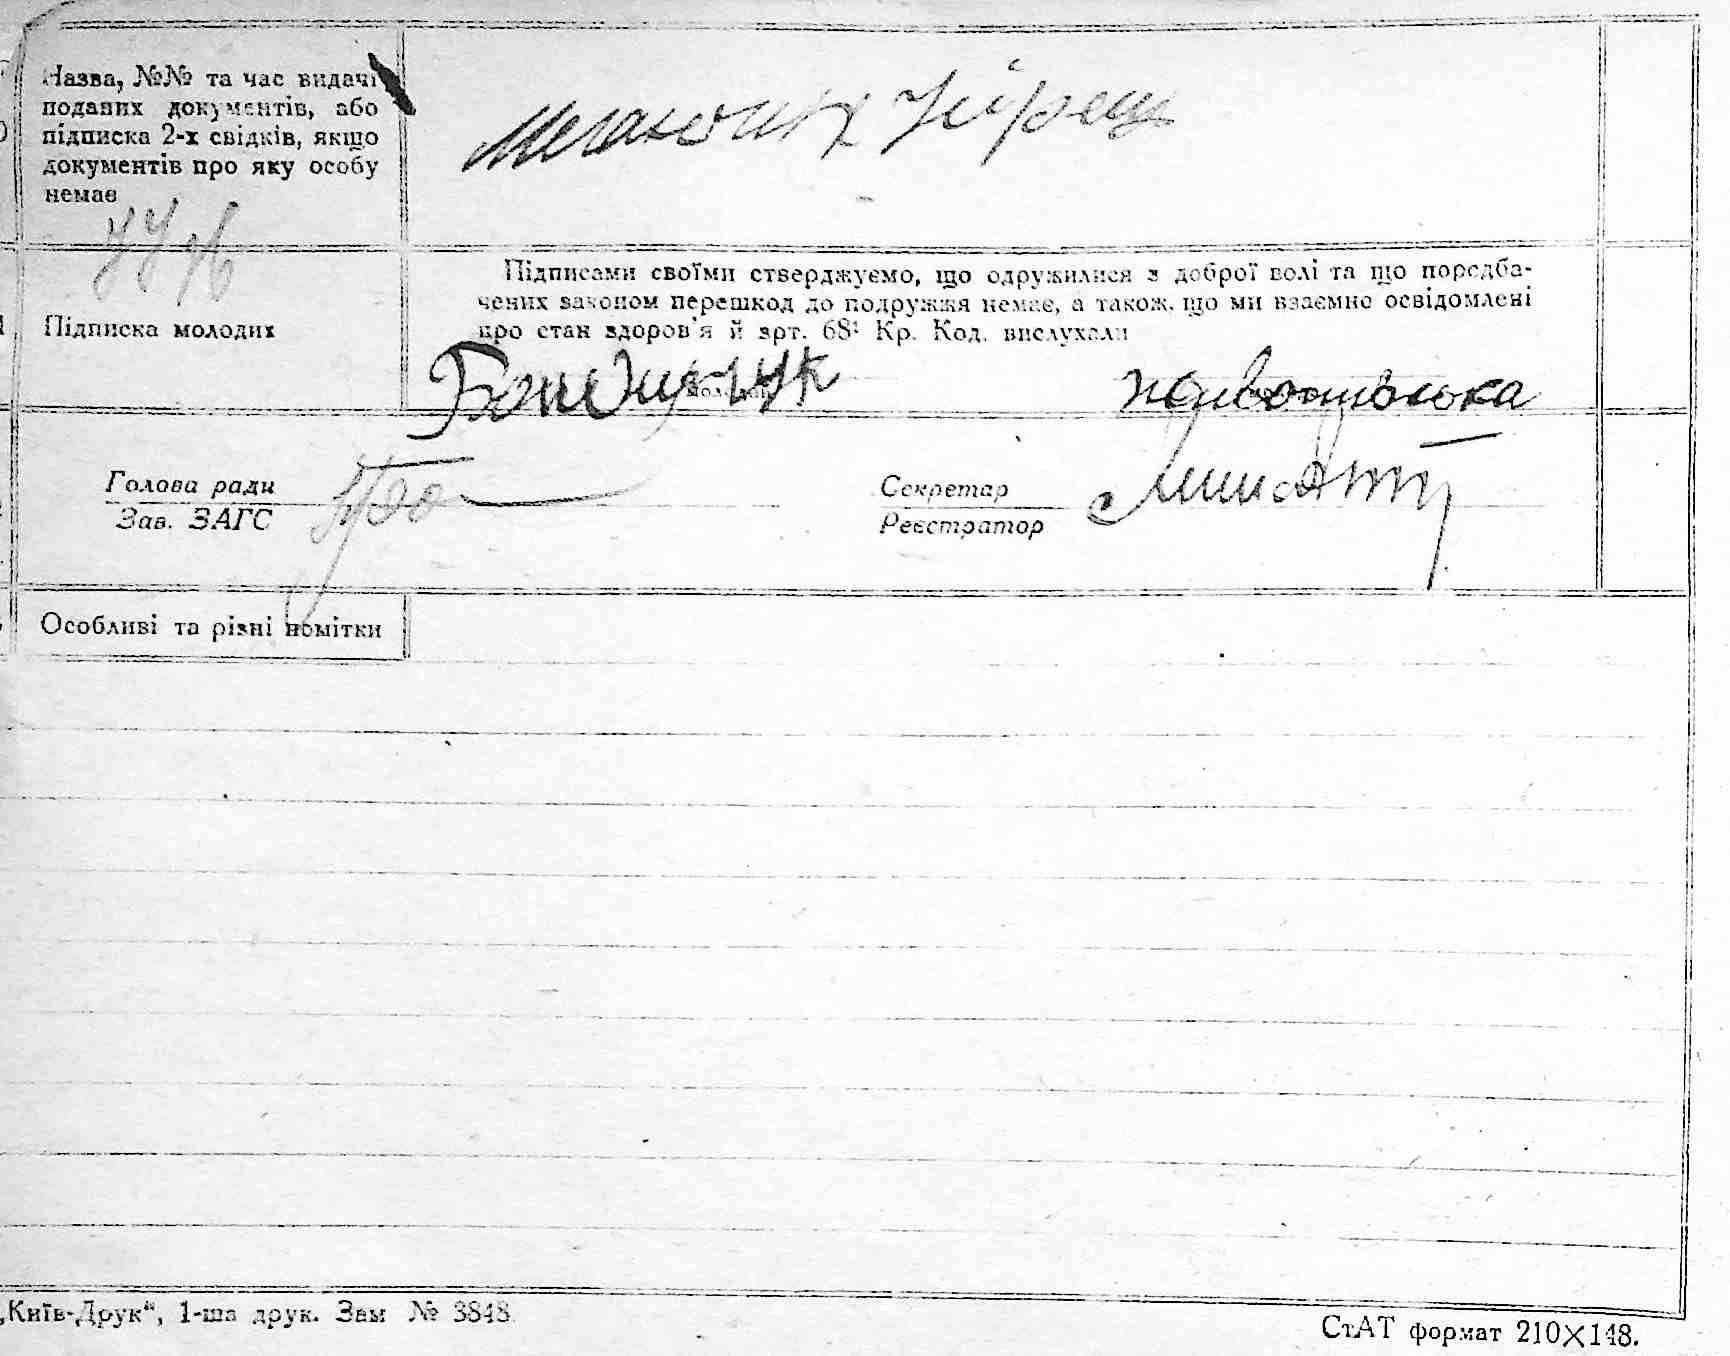 Назва, №№ та час видачі
поданих документів, або
підписка 2-х свідків, якщо
документів про яку особу
немає
Підписка молодих
Підписами своїми стверджуємо, що одружилися з доброї волі та що передба-
чених законом перешкод до подружжя немає, а також, що ми взаємно освідомлені
про стан здоров'я й арт. 68¹ Кр. Код. вислухали
Голова ради
Зав. ЗАГС
Секретар
Реєстратор
Особливі та різні помітки
„Київ-Друк“, 1-ша друк. Зам № 3848
СтАТ формат 210×148.